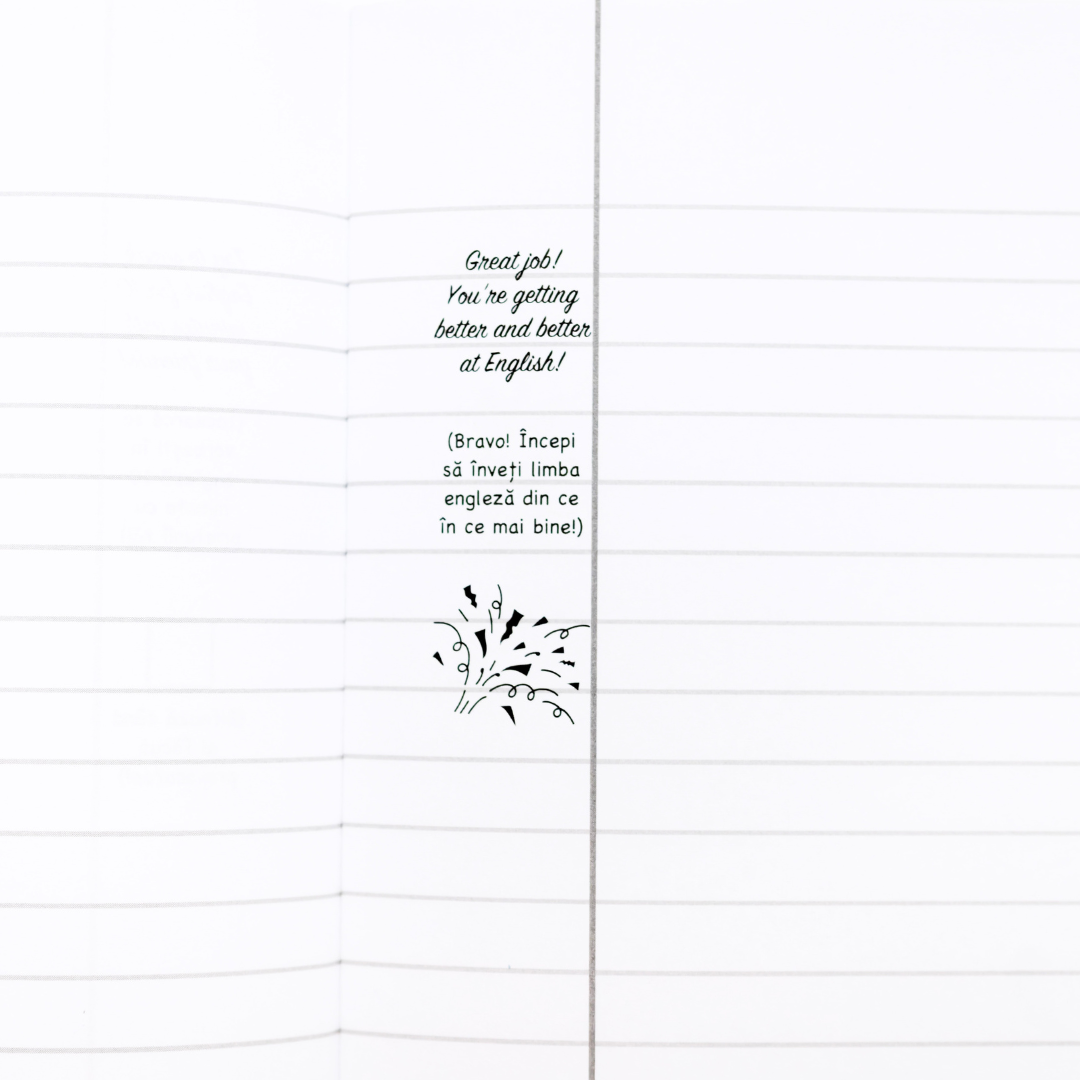 Great job!
You're getting
better and better
at English!
(Bravo! Începi
să înveți limba
engleză din ce
în ce mai bine!)